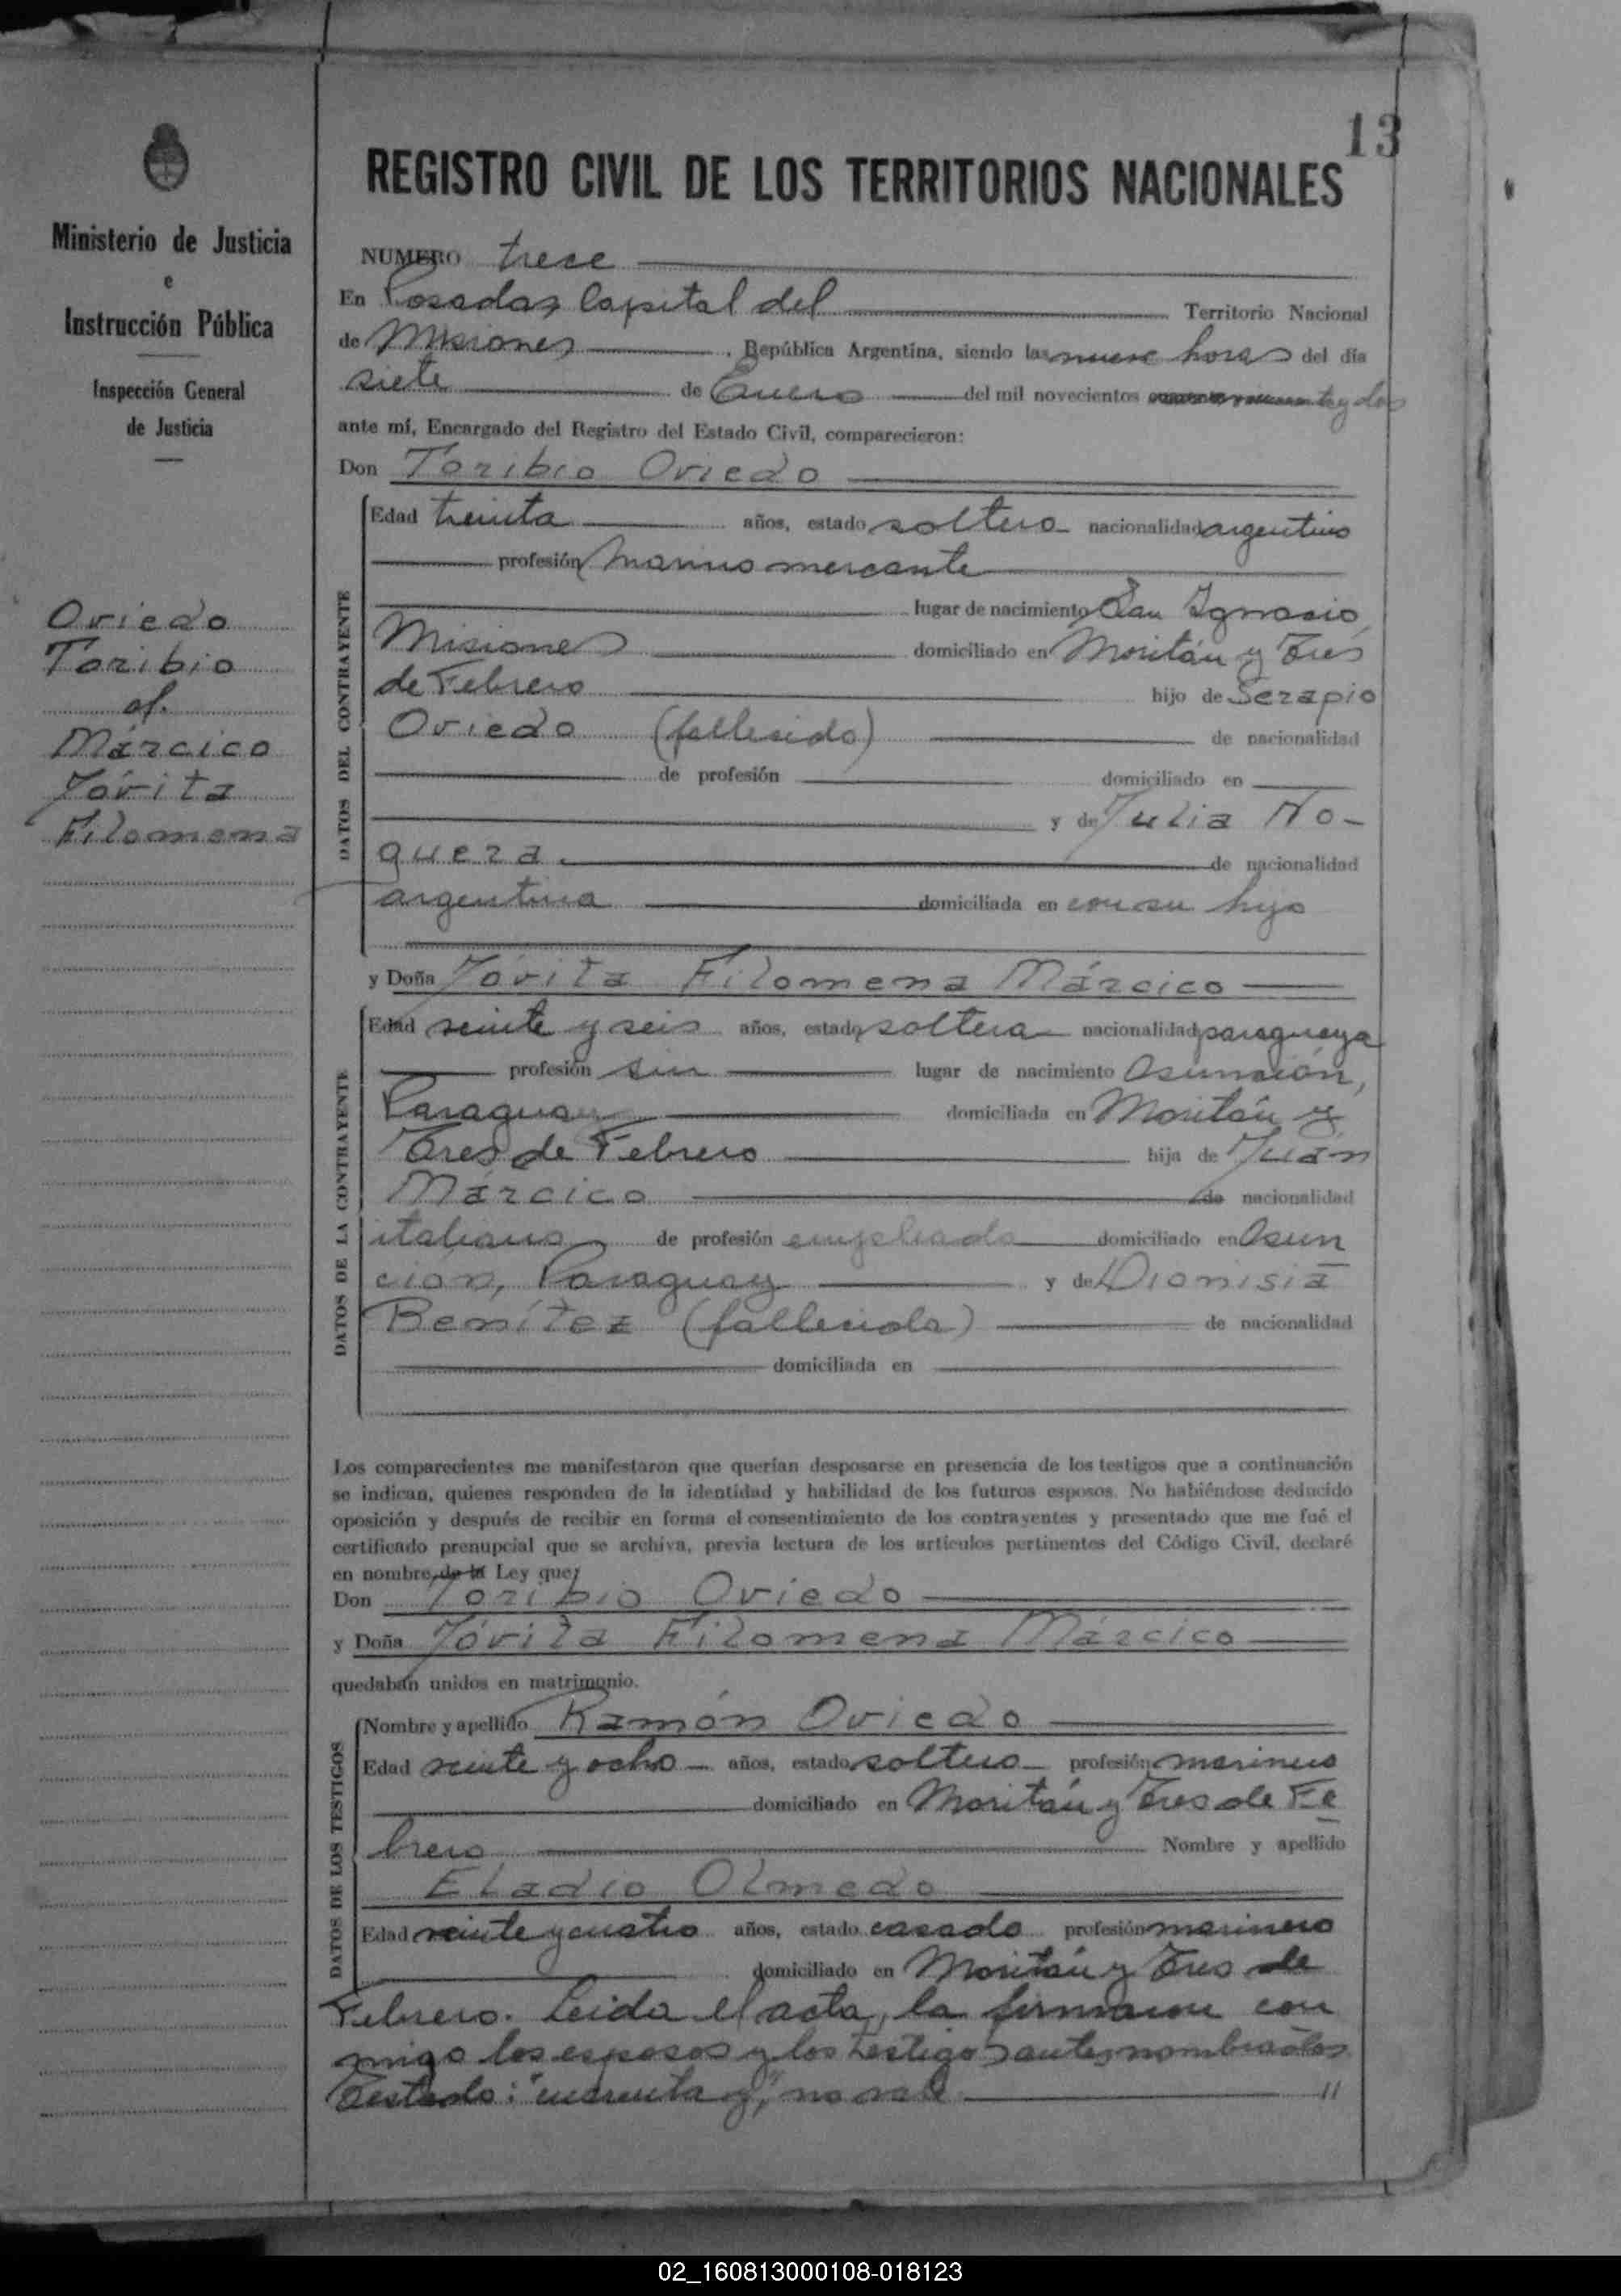 13
REGISTRO CIVIL DE LOS TERRITORIOS NACIONALES
Ministerio de Justicia
e
Instrucción Pública
Inspección General
de Justicia
Oviedo
Toribio
Márcico
Jóvita
Filomena
NUMERO trece
En Posadas Capital del Territorio Nacional
de Misiones, República Argentina, siendo las nueve horas del día
siete de Enero del mil novecientos y dos
ante mí, Encargado del Registro del Estado Civil, comparecieron:
Don Toribio Oviedo
DATOS DEL CONTRAYENTE
Edad treinta años, estado soltero nacionalidad argentino
profesión marino mercante
lugar de nacimiento San Ignacio,
Misiones domiciliado en Moritán y Tres
de Febrero hijo de Serapio
Oviedo (fallecido) de nacionalidad
de profesión domiciliado en
y de Julia No-
guera de nacionalidad
argentina domiciliada en con su hijo
y Doña Jóvita Filomena Márcico
DATOS DE LA CONTRAYENTE
Edad veinte y seis años, estado soltera nacionalidad paraguaya
profesión sin lugar de nacimiento Asunción,
Paraguay domiciliada en Moritán y
Tres de Febrero hija de Juan
Márcico de nacionalidad
italiano de profesión empleado domiciliado en Asun
ción, Paraguay y de Dionisia
Benítez (fallecida) de nacionalidad
domiciliada en
Los comparecientes me manifestaron que querían desposarse en presencia de los testigos que a continuación
se indican, quienes responden de la identidad y habilidad de los futuros esposos. No habiéndose deducido
oposición y después de recibir en forma el consentimiento de los contrayentes y presentado que me fué el
certificado prenupcial que se archiva, previa lectura de los artículos pertinentes del Código Civil, declaré
en nombre de la Ley que:
Don Toribio Oviedo
y Doña Jóvita Filomena Márcico
quedaban unidos en matrimonio.
DATOS DE LOS TESTIGOS
Nombre y apellido Ramón Oviedo
Edad veinte y ocho años, estado soltero profesión marinero
domiciliado en Moritán y Tres de Fe
brero Nombre y apellido
Eladio Olmedo
Edad veinte y cuatro años, estado casado profesión marinero
domiciliado en Moritán y Tres de
Febrero. Leida el acta, la firmaron con
migo los esposos y los testigos antes nombrados
Testado: "cuarenta y", no vale //
02_160813000108-018123